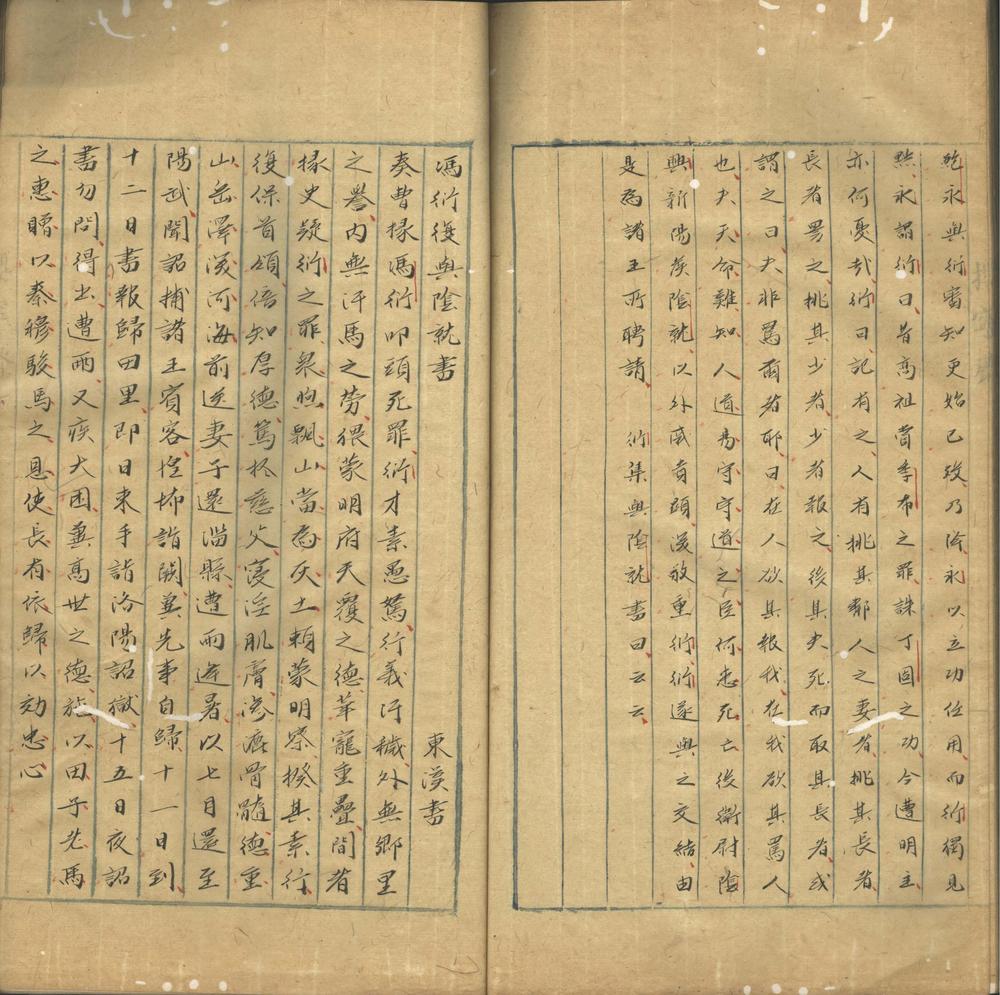 鮑永與衍審知更始已歿乃降永以立功任用而衍獨見
黜永謂衍曰昔高祖賞季布之罪誅丁固之功今遭明主
亦何憂哉衍曰記有之人有挑其鄰人之妻者挑其長者
長者詈之挑其少者少者報之後其夫死而取其長者或
謂之曰夫非罵爾者耶曰在人欲其報我在我欲其罵人
也夫天命難知人道易守守道之臣何患死亡後衛尉陰
興新陽侯陰就以外戚貴顯深敬重衍衍遂與之交結由
是為諸王所聘請 衍集與陰就書曰云云
馮衍復與陰就書 東漢書
奏曹掾馮衍叩頭死罪衍才素愚駑行義污穢外無鄉里
之譽內無汗馬之勞猥蒙明府天覆之德華寵重疊間者
掾史疑衍之罪眾煦飄山當為灰土賴蒙明察揆其素行
復保首領倍知厚德篤於慈父寖淫肌膚滲漉骨髓德重
山岳澤深河海前送妻子還淄縣遭雨逆暑以七月還至
陽武聞詔捕諸王賓客惶怖詣闕冀先事自歸十一日到
十二日書報歸田里即日束手詣洛陽詔獄十五日夜詔
書勿問得出遭雨又疾大困冀高世之德施以田子老馬
之惠贈以秦穆駿馬之恩使長有依歸以効忠心